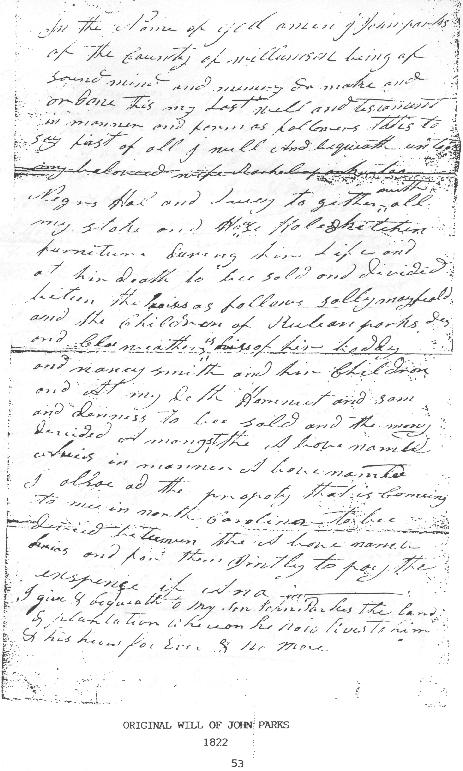 In the Name of god amen I John parks
of the County of williamson being of
sound mind and memory do make and
ordane this my Last will and testament
in manner and form as followers this to
say first of all I will and bequath unto
my beloved wife Rachel parks two
Negros Hal and Lucy to gether with all
my stoke and House Hole & kitchen
furniture during her Life and
at her death to bee sold and divided
between the heirs as follows sally mayfield
and the Children of Reuben parks
and heirs of her boddy
and nancy smith and her Children
and At my deth Hammet and sam
and dennis to bee sold and the mony
devided A mongst the A bove named
in manner A bove named
I alsoe ad the propoty that is Coming
to me in north Carolina to bee
devided between the A bove named
heirs and for them Jointly to pay the
expence of
I give & bequath to my son the land
& plantation whereon he now lives to him
& his heirs for Ever & No more
ORIGINAL WILL OF JOHN PARKS
1822
53